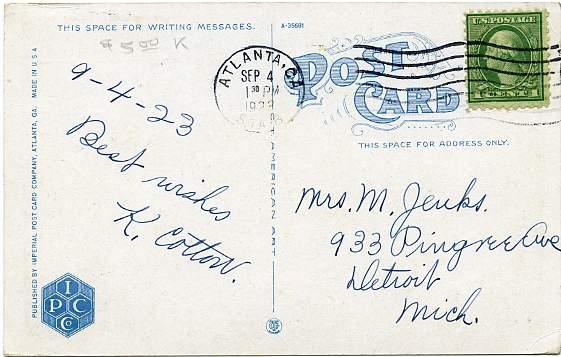 THIS SPACE FOR WRITING MESSAGES.
A-35691
$5.00 K
9-4-23
Best wishes
K. Cotton.
ATLANTA, GA
SEP 4
PM
U.S. POSTAGE
POST
CARD
THIS SPACE FOR ADDRESS ONLY.
Mrs. M. Jenks.
933 Pingree Ave
Detroit
Mich.
PUBLISHED BY IMPERIAL POST CARD COMPANY, ATLANTA, GA. MADE IN U S A
AMERICAN ART
I
P C
Co